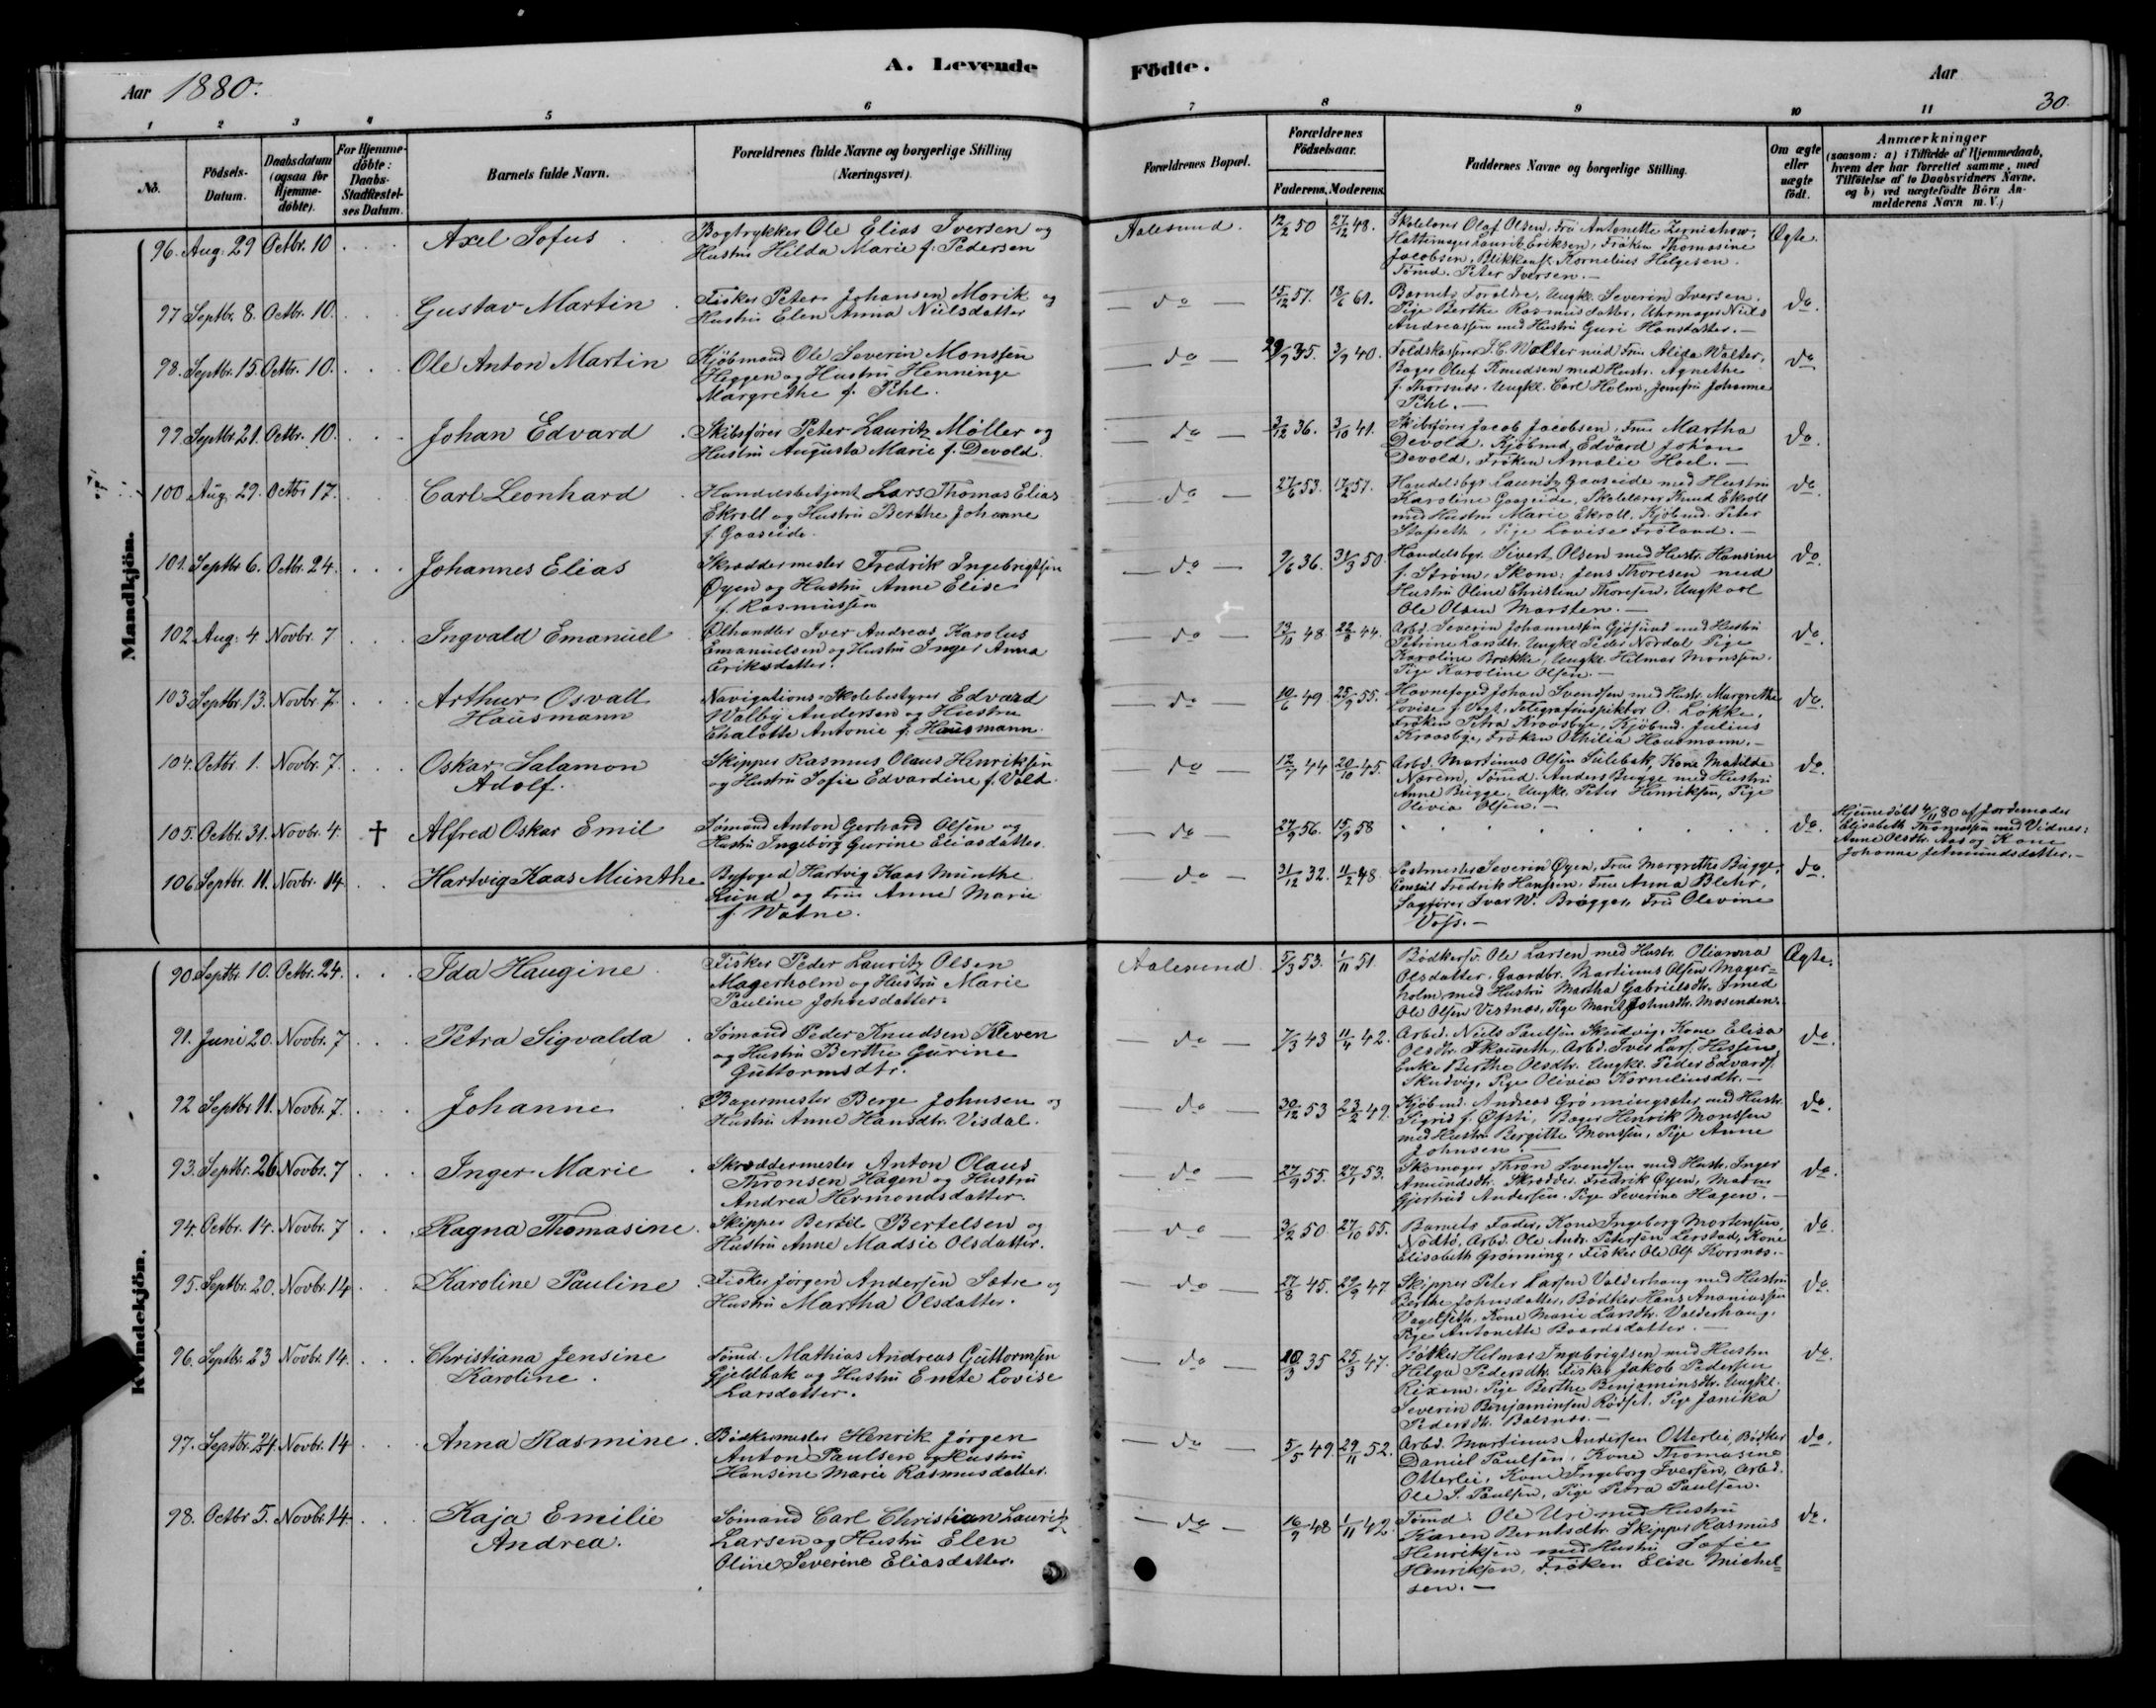 A. Levende Födte.
Aar 1880.
Aar
30.
1 2 3 4 5 6 7 8 9 10 11
No.
Födsels-Datum.
Daabsdatum (ogsaa for Hjemme-döbte).
For Hjemme-döbte: Daabs-Stadfæstelses Datum.
Barnets fulde Navn.
Forældrenes fulde Navne og borgerlige Stilling (Næringsvei).
Forældrenes Bopæl.
Forældrenes Födselsaar.
Faderens. Moderens.
Faddernes Navne og borgerlige Stilling.
Om ægte eller uægte födt.
Anmærkninger
(saasom: a) i Tilfælde af Hjemmedaab, hvem der har forrettet samme, med Tilföielse af to Daabsvidners Navne, og b) ved uægtefödte Börn Anmelderens Navn m. V.)
Mandkjön.
96. Aug. 29 Octbr. 10 Axel Sofus
Bogtrykker Ole Elias Iversen og
Hustru Hilda Marie f. Pedersen
Aalesund. 12/2 50 27/12 48.
Skolelærer Olaf Olsen, Fru Antonette Zernichow,
Hattemager Laurits Eriksen, Frøken Thomasine
Jacobsen, Blikkensl. Kornelius Helgesen.
Tømd. Peter Iversen.—
Ægte.
97 Septbr. 8. Octbr. 10. Gustav Martin
Fisker Peter Johansen Morik og
Hustru Elen Anna Nielsdatter
do 15/12 57. 18/6 61.
Barnets Forældre, Ungk. Severin Iversen.
Pige Berthe Rasmusdatter, Uhrmager Niels
Andreassen med Hustru Guri Hansdatter.—
do.
98. Septbr. 15. Octbr. 10. Ole Anton Martin
Kjöbmand Ole Severin Monssen
Heggen og Hustru Henninge
Margrethe f. Pihl.
do 29/9 35. 3/9 40.
Toldkasserer J. C. Walter med Fru Alida Walter,
Bager Oluf Knudsen med Hustr. Agnethe
f. Thorsnes. Ungkl. Carl Holm, Jomfru Johanne
Pihl.—
do
99. Septbr. 21. Octbr. 10. Johan Edvard
Skibsfører Peter Lauritz Møller og
Hustru Augusta Marie f. Devold.
do 3/12 36. 3/10 41.
Skibsfører Jacob Jacobsen, Fru Martha
Devold. Kjöbmd. Edvard Johan
Devold, Frøken Amalie Hoel.—
do.
100 Aug. 29. Octbr 17. Carl Leonhard
Handelsbetjent Lars Thomas Elias
Ekroll og Hustru Berthe Johanne
f. Gaaseide.
do 27/6 53. 17/2 57.
Handelsbgr. Lauritz Gaaseide med Hustru
Karoline Gaaseide, Skolelærer Knud Ekroll
med Hustru Marie Ekroll. Kjöbmd. Peter
Stafseth, Pige Lovise Frøland.—
do
101. Septbr 6. Octbr. 24. Johannes Elias
Skræddermester Fredrik Ingebrigtsen
Øyen og Hustru Anne Elise
f. Rasmussen
do 9/6 36. 31/3 50.
Handelsbgr. Sivert Olsen med Hustr. Hansine
f. Strøm, Skom: Jens Thoresen med
Hustru Oline Christine Thoresen, Ungkarl
Ole Olsen Marsten.—
do.
102 Aug. 4 Novbr. 7 Ingvald Emanuel
Ølhandler Iver Andreas Karolus
Emanuelsen og Hustru Inger Anna
Eriksdatter.
do 23/10 48. 22/8 44.
Arbd. Severin Johannessen Gjøsund med Hustru
Petrine Larsdtr. Ungkl Peder Nordal Pige
Karoline Brække, Ungkl. Hilmar Monssen.
Pige Karoline Olsen.—
do.
103 Septbr. 13. Novbr. 7. Arthur Osvall
Hausmann
Navigations-Skolebestyrer Edvard
Walby Andersen og Hustru
Chalotte Antonie f. Hausmann.
do 10/6 49 25/9 55.
Havnefoged Johan Svendsen med Hustr. Margrethe
Lovise f. Vogt, Telegrafinspektør O. Løkke,
Frøken Petra Kraasbye, Kjöbmd. Julius
Kraasbye, Frøken Othilia Hausmann.—
do.
104. Octbr. 1. Novbr. 7. Oskar Salamon
Adolf.
Skipper Rasmus Olaus Henriksen
og Hustru Sofie Edvardine f. Vold.
do 12/7 44 20/10 45.
Arbd. Martinus Olsen Sulebak, Kone Matilde
Nærem, Tømd. Anders Bugge med Hustru
Anne Bugge, Ungkl. Peter Henriksen, Pige
Olivia Olsen.—
do.
105. Octbr. 31. Novbr. 4. † Alfred Oskar Emil
Sømand Anton Gerhard Olsen og
Hustru Ingeborg Gurine Eliasdatter.
do 27/9 56. 15/9 58
do.
Hjemedøbt 4/11 80 af Jordemoder
Elisabeth Thomassen med Vidner:
Anne Olsdtr. Aas og Kone
Johanne Jetmundsdatter.—
106 Septbr. 11. Novbr. 14. Hartvig Kaas Munthe
Byfoged Hartvig Kaas Munthe
Lund og Fru Anne Marie
f. Watne.
do 31/12 32. 11/2 48.
Postmester Severin Øyen, Frue Margrethe Bugge,
Consul Fredrik Hanssen, Frue Anna Blehr,
Sagfører Ivar W. Brøgger, Fru Olevine
Voss.—
do.
Kvindekjön.
90 Septbr. 10. Octbr. 24. Ida Haugine
Fisker Peder Lauritz Olsen
Magerholm og Hustru Marie
Pauline Johnsdatter.
Aalesund 5/3 53. 1/11 51.
Bødkersv. Ole Larsen med Hustr. Olianna
Olsdatter. Gaardbr. Martinus Olsen Mager=
holm med Hustru Martha Gabrielsdtr. Smed
Ole Olsen Vestnes, Pige Marit Johnsdtr. Masenden.
Ægte.
91. Juni 20. Novbr. 7 Petra Sigvalda
Sømand Peder Knudsen Kleven
og Hustru Berthe Gurine
Guttormsdtr.
do 7/3 43 11/4 42.
Arbd. Niels Paulsen Skudvig, Kone Elisa
Olsdtr. Skauseth, Arbd. Iver Lars. Hessen
Enke Berthe Olsdtr. Ungkl. Peder Edvards.
Skudvig, Pige Olivia Korneliusdtr.—
do.
92 Septbr. 11. Novbr. 7. Johanne
Bagermester Berge Johnsen og
Hustru Anne Hansdtr. Visdal.
do 30/12 53 23/2 49.
Kjöbmd. Andreas Grønningsæter med Hustr.
Sigrid f. Øfsti, Bager Henrik Monssen
med Hustru Bergitte Monssen, Pige Anne
Johnsen.—
do.
93. Septbr. 26 Novbr. 7 Inger Marie
Skræddermester Anton Olaus
Thronsen Hagen og Hustru
Andrea Hermondsdatter.
do 27/9 55. 27/1 53.
Skomager Thron Svendsen med Hustr. Inger
Amundsdtr. Skrædder. Fredrik Øyen, Madm
Gjertrud Andersen. Pige Severine Hagen.—
do.
94. Octbr. 14. Novbr. 7 Ragna Thomasine.
Skipper Bertel Bertelsen og
Hustru Anne Madsie Olsdatter.
do 3/2 50 27/10 55.
Barnets Fader, Kone Ingeborg Mortensen,
Nødtø, Arbd. Ole Andr. Petersen Lerstad, Kone
Elisabeth Grønning, Fisker Ole Ols. Korsnes.—
do.
95. Septbr. 20. Novbr. 14 Karoline Pauline
Fisker Jørgen Andersen Sætre og
Hustru Martha Olsdatter.
do 27/8 45. 29/9 47
Skipper Peter Larsen Valderhaug med Hustru
Berthe Johnsdatter, Bødker Hans Ananiassen
Vegelseth, Kone Marie Larsdtr. Valderhaug.
Pige Antonette Baardsdatter.—
do.
96. Septbr. 23 Novbr. 14. Christiana Jensine
Karoline.
Tømd. Mathias Andreas Guttormsen
Gjeldbak og Hustru Emte Lovise
Larsdatter.
do 20/3 35 25/3 47.
Bødker Hilmar Ingebrigtsen med Hustru
Helga Pedersdtr. Fisker Jakob Pedersen
Rixem, Pige Berthe Benjaminsdtr. Ungkl.
Severin Benjaminsen Rødset. Pige Janika
Pedersdtr. Balsnes.—
do.
97. Septbr. 24. Novbr. 14 Anna Rasmine.
Bødkermester Henrik Jørgen
Anton Paulsen og Hustru
Hansine Marie Rasmusdatter.
do 5/5 49. 29/11 52.
Arbd. Martinus Andersen Otterlei, Bødker
Daniel Paulsen, Kone Thomasine
Otterlei, Kone Ingeborg Iversen, Arbd.
Ole S. Paulsen, Pige Petra Paulsen.
do.
98. Octbr 5. Novbr. 14. Kaja Emilie
Andrea.
Sömand Carl Christian Lauritz
Larsen og Hustru Elen
Oline Severine Eliasdatter.
do 16/9 48 1/11 42.
Tømd. Ole Uri med Hustru
Karen Berntsdtr. Skipper Rasmus
Henriksen med Hustru Sofie
Henriksen, Frøken Elise Michel=
sen.—
do.